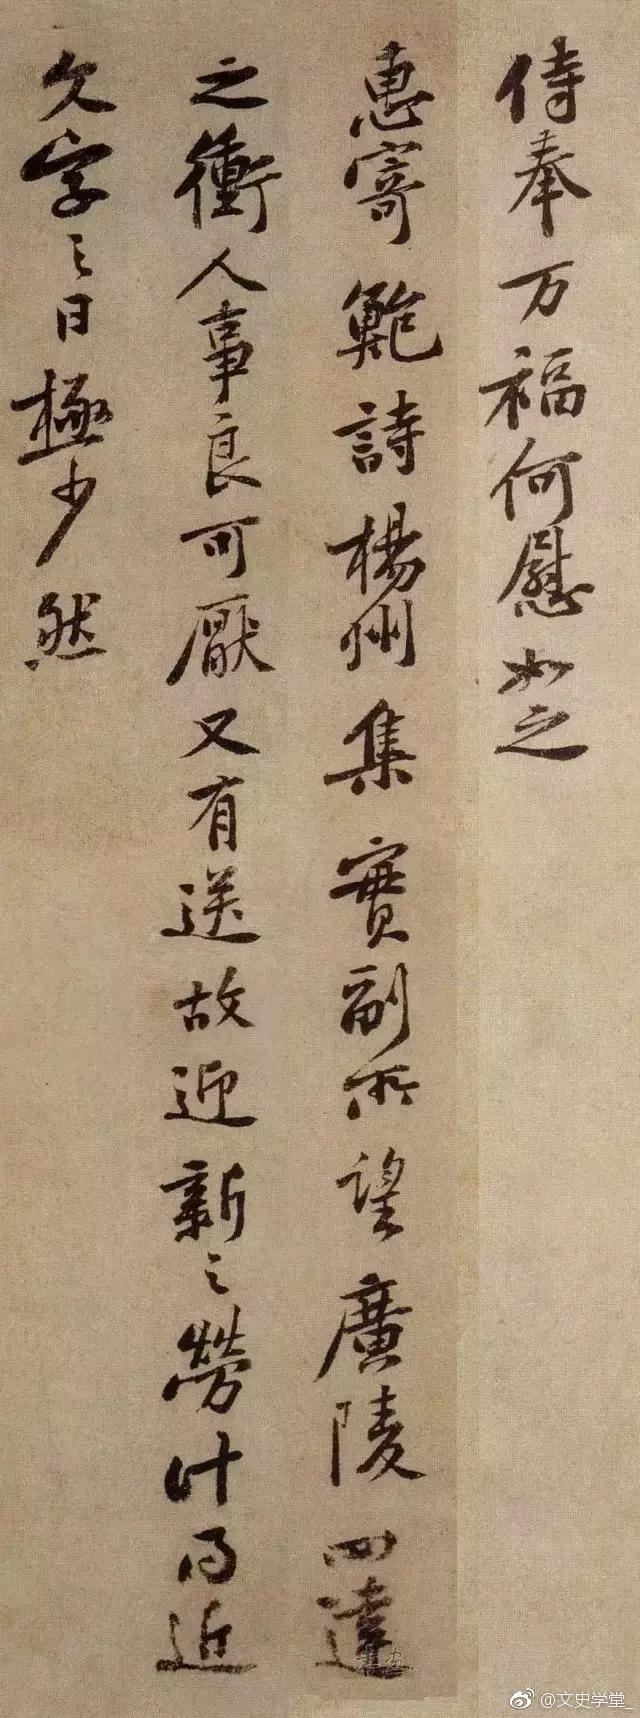 侍奉万福何慰如之
惠寄鮑詩楊州集實副所望廣陵四達
之衝人事良可厭又有送故迎新之勞計得近
文字之日極少然
@文史学堂_